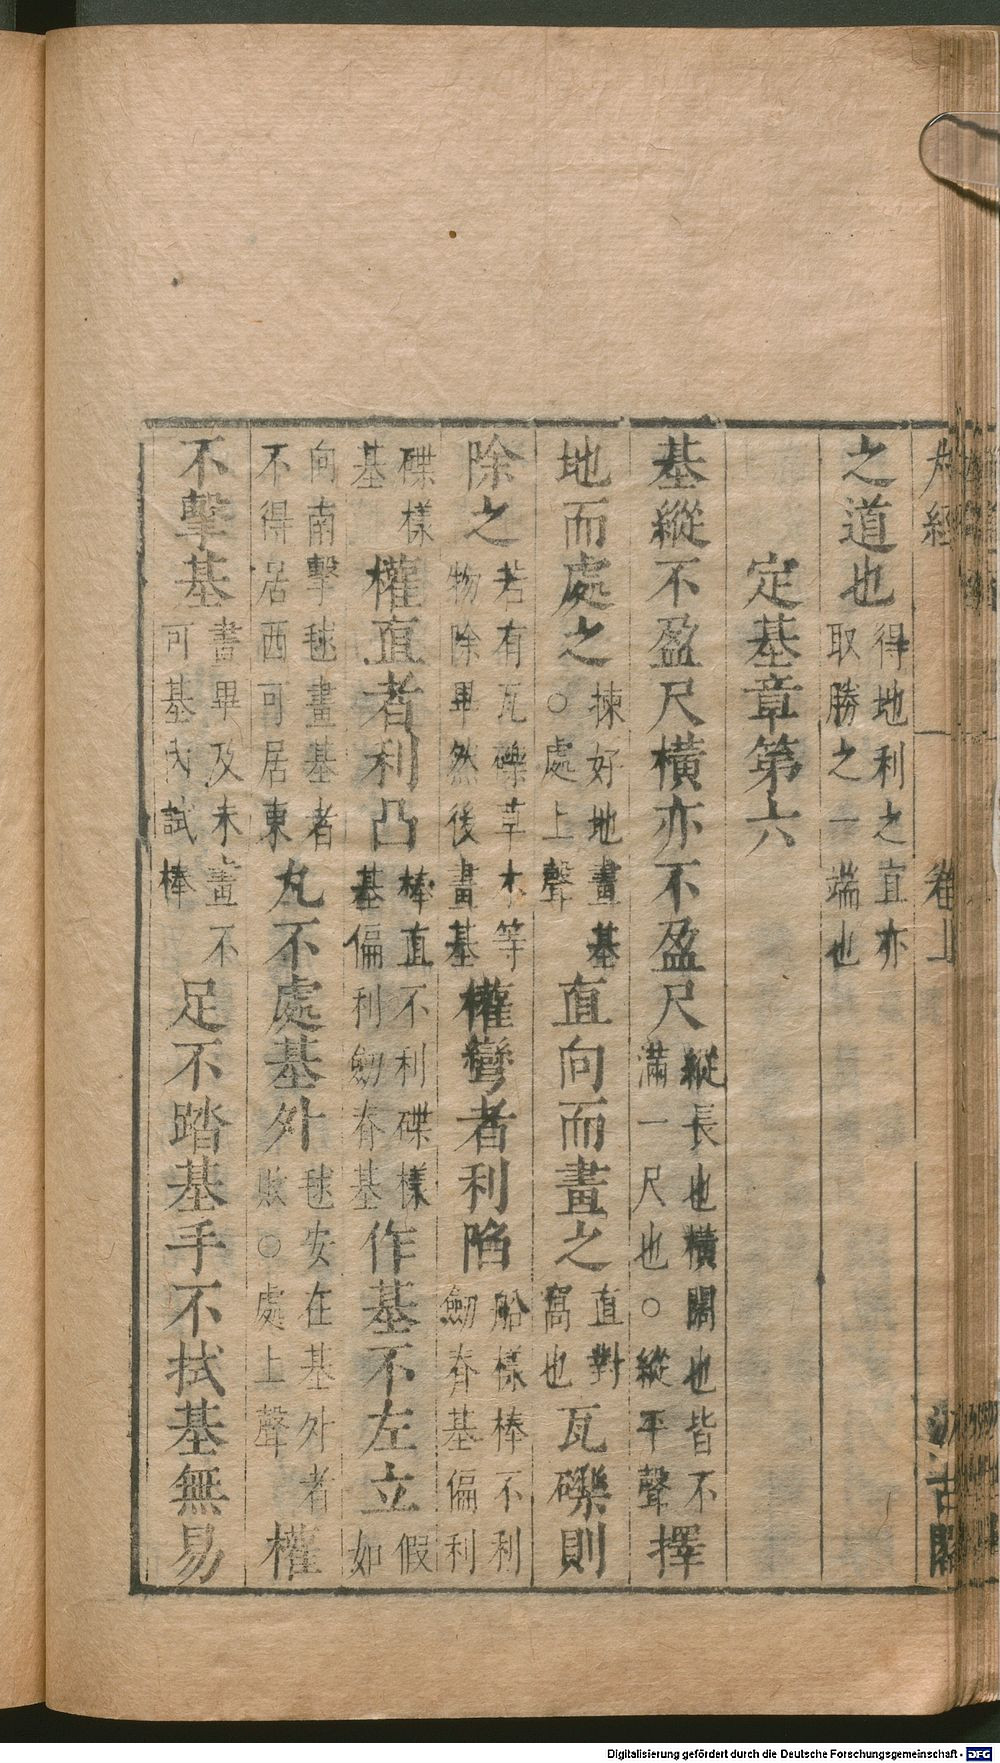 丸經 卷上
之道也得地利之宜亦取勝之一端也
定基章第六
基縱不盈尺橫亦不盈尺縱長也橫闊也皆不滿一尺也○縱平聲擇
地而處之揀好地畫基○處上聲直向而畫之直對窩也瓦礫則
除之若有瓦礫草木等物除畢然後畫基權彎者利陷船樣棒不利劒脊基偏利
碟樣基權直者利凸棒直不利碟樣基偏利劒脊基作基不左立假如
向南擊毬畫基者不得居西可居東丸不處基外毬安在基外者敗○處上聲權
不擊基畫畢及未畫不可基內試棒足不踏基手不拭基無易
Digitalisierung gefördert durch die Deutsche Forschungsgemeinschaft - DFG